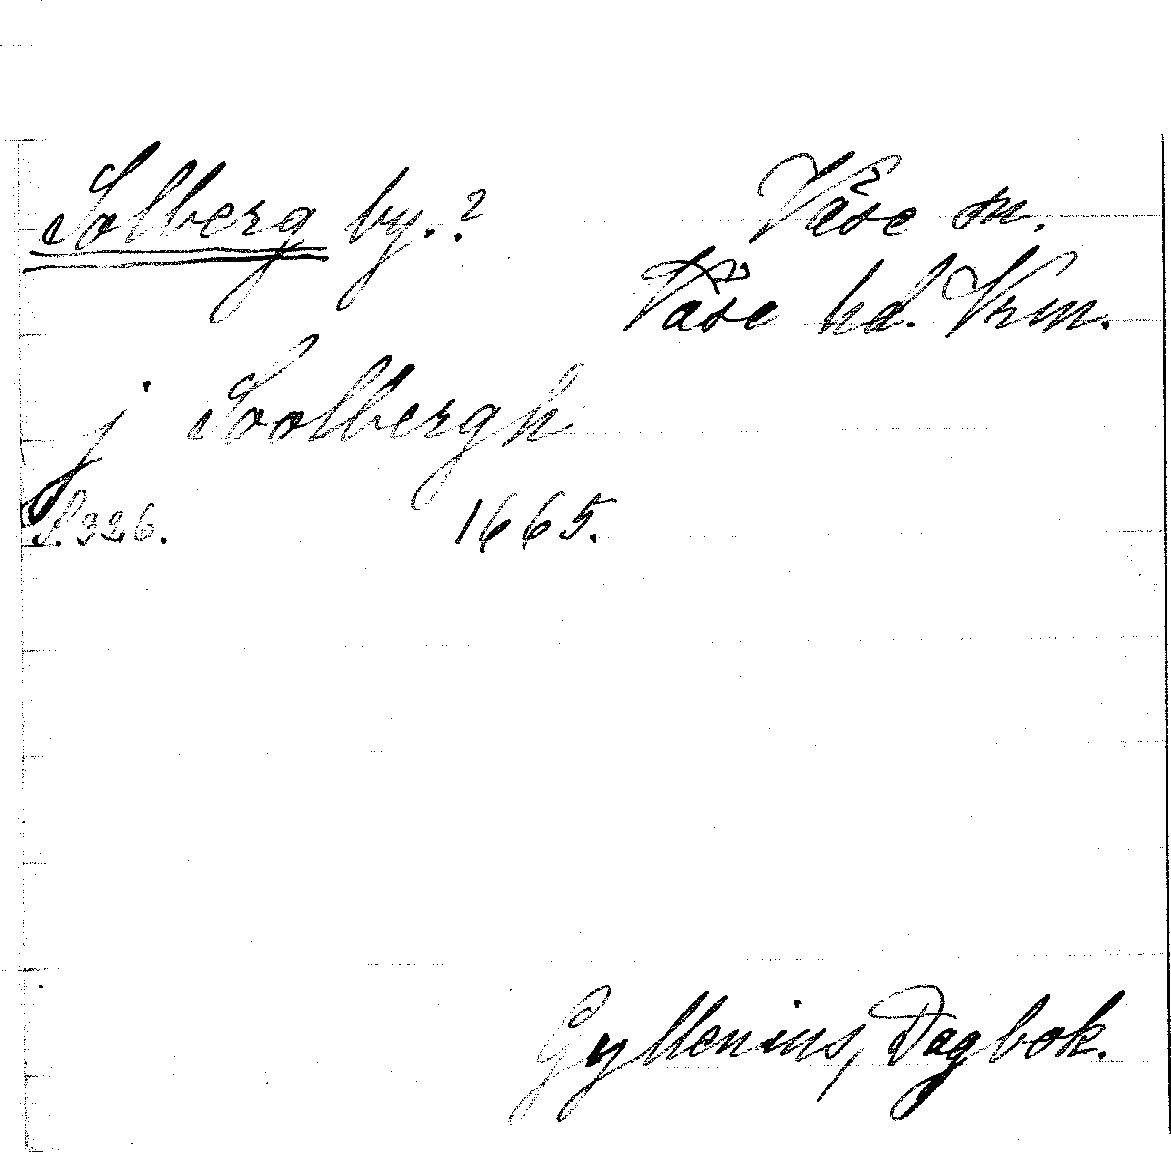 Solberg by.?
Väse sn.
Väse hd. Vrm.
j Soolbergh
S. 326. 1665.
Gyllenius, Dagbok.